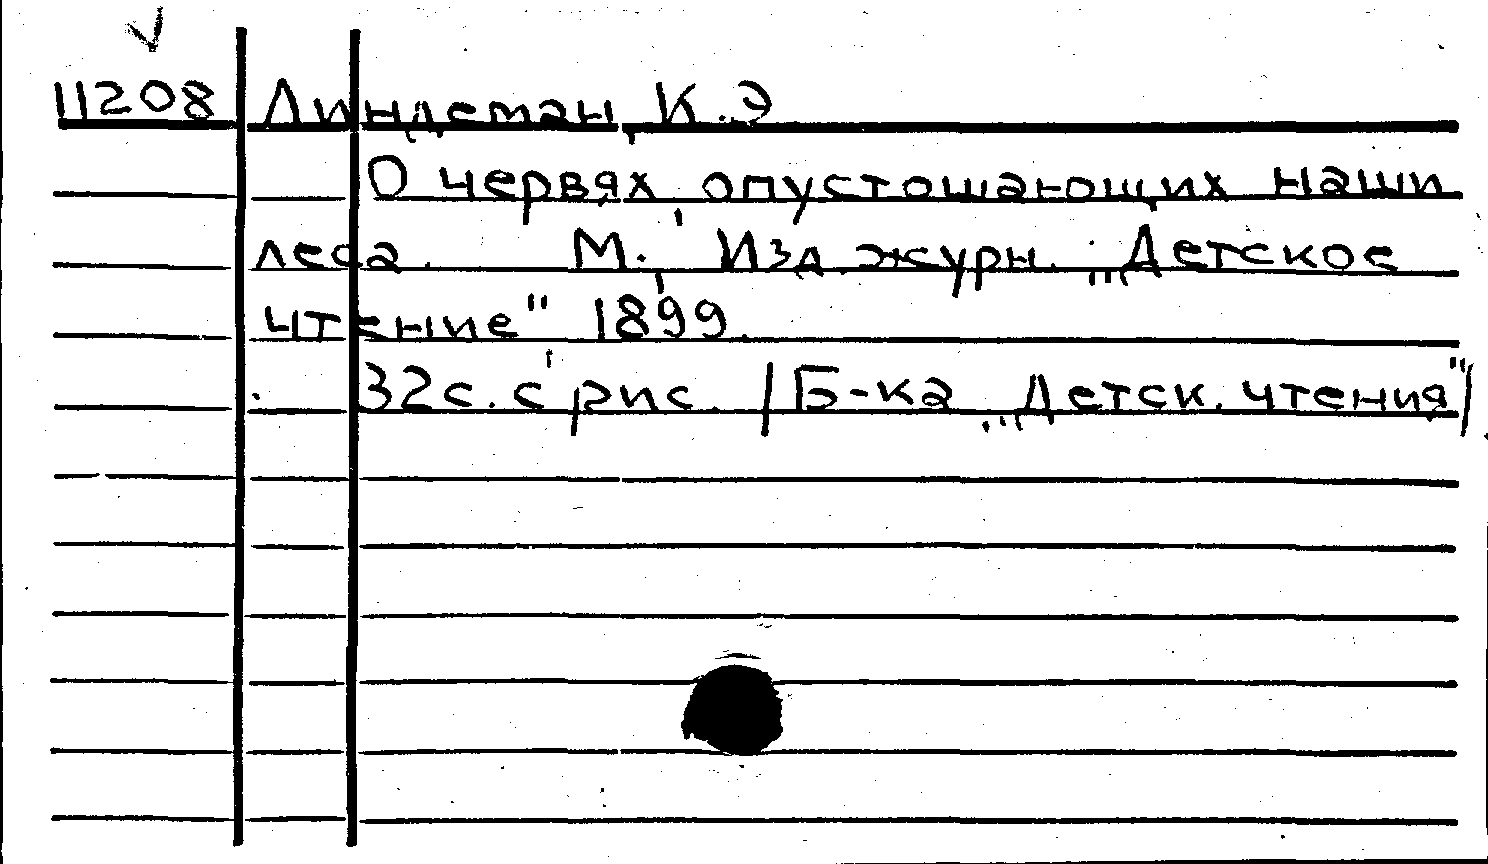 11208 Линдеман, К.Э
О червях, опустошающих наши
леса. М., Изд. журн. „Детское
чтение" 1899.
32с. с рис. /Б-ка „Детск. чтения"/